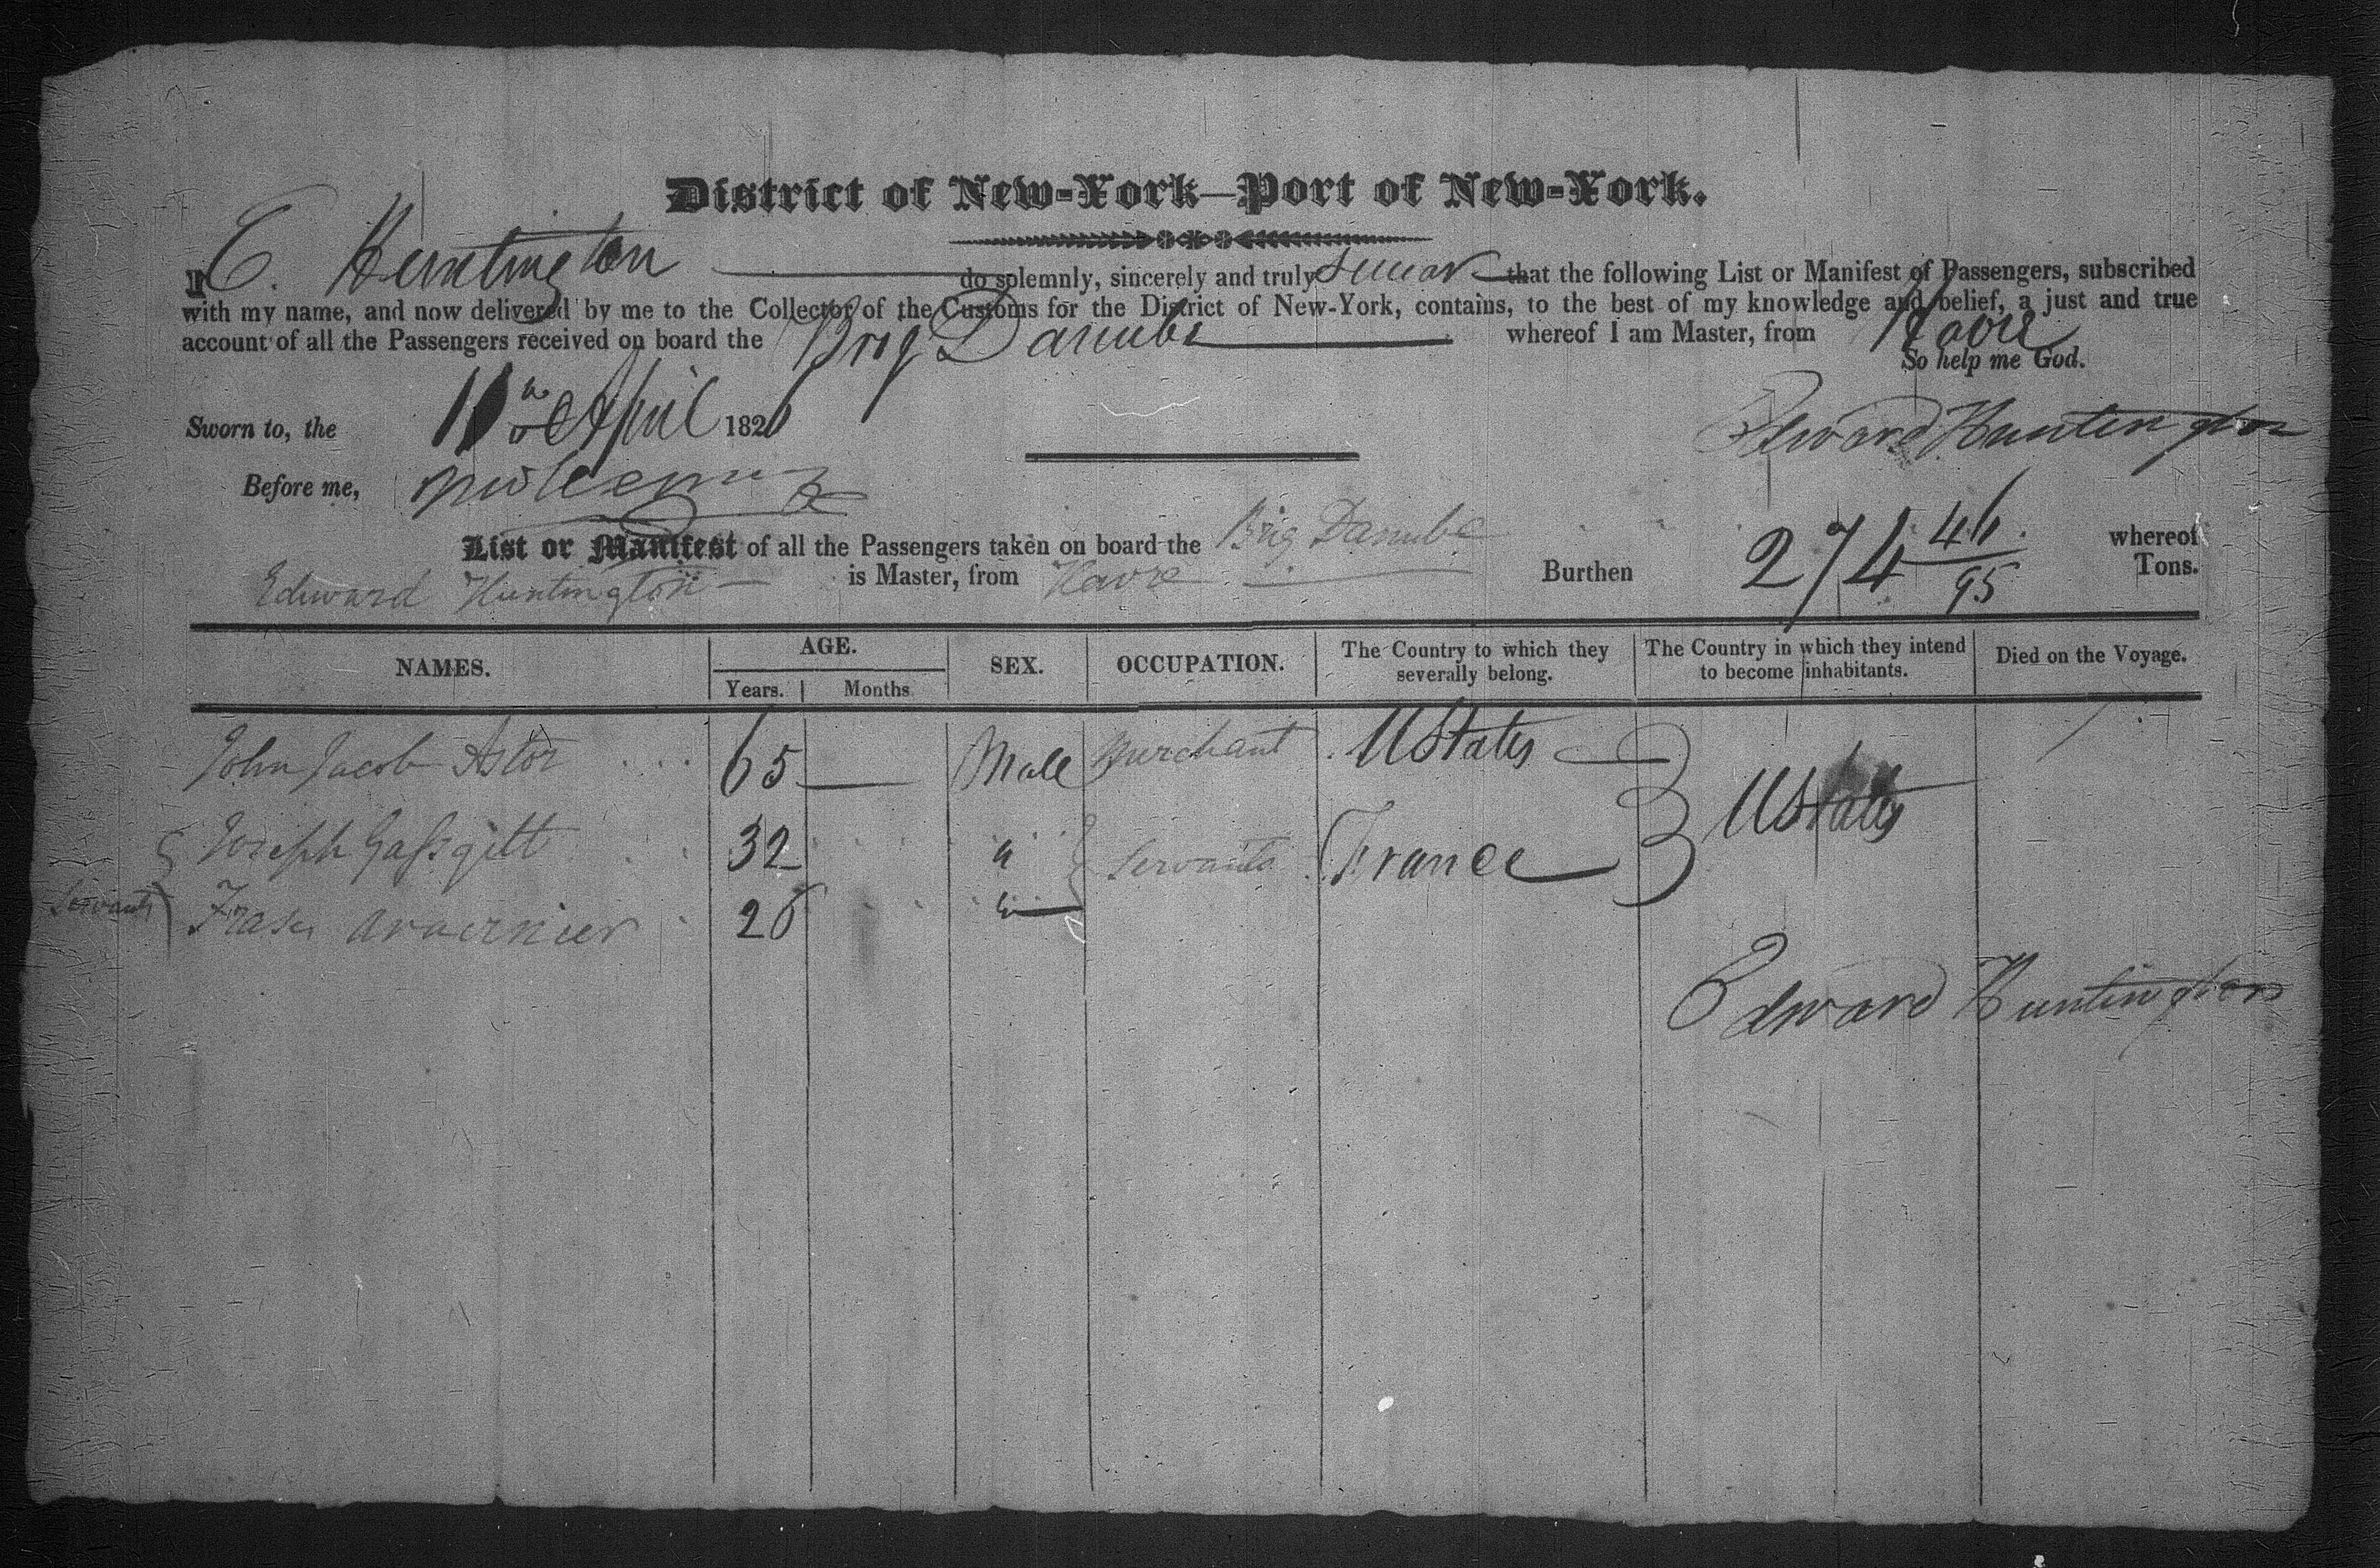 District of New-York—Port of New-York.
I E. Huntington do solemnly, sincerely and truly swear that the following List or Manifest of Passengers, subscribed
with my name, and now delivered by me to the Collector of the Customs for the District of New-York, contains, to the best of my knowledge and belief, a just and true
account of all the Passengers received on board the Brig Danube whereof I am Master, from Havre
So help me God.
Sworn to, the April 1826
Edward Huntington
Before me,
List or Manifest of all the Passengers taken on board the Brig Danube whereof
Edward Huntington is Master, from Havre Burthen 274 46/95 Tons.
NAMES. AGE. SEX. OCCUPATION. The Country to which they severally belong. The Country in which they intend to become inhabitants. Died on the Voyage.
Years. Months
John Jacob Astor 65 Male Merchant UStates
UStates
Joseph 32 " Servants France
Servants 26 "
Edward Huntington